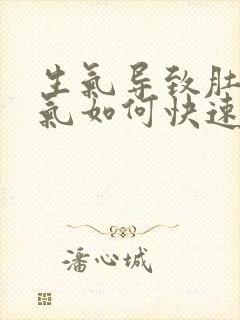 生氣导致肚
氣如何快速
潘心城